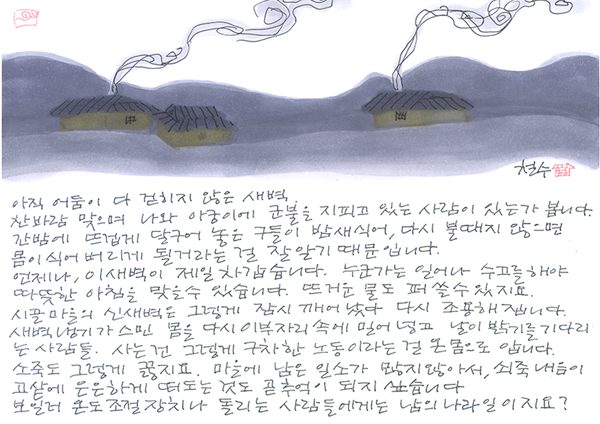 철수
아직 어둠이 다 걷히지 않은 새벽.
찬바람 맞으며 나와 아궁이에 군불을 지피고 있는 사람이 있는가 봅니다.
간밤에 뜨겁게 달구어 놓은 구들이 밤새 식어, 다시 불때지 않으면
몸이 식어 버리게 될거라는 걸 잘 알기 때문입니다.
언제나, 이새벽이 제일 차갑습니다. 누군가는 일어나 수고를 해야
따뜻한 아침을 맞을수 있습니다. 뜨거운 물도 퍼 쓸수 있지요.
시골 마을의 신새벽은 그렇게 잠시 깨어났다 다시 조용해집니다.
새벽 냉기가 스민 몸을 다시 이부자리 속에 밀어 넣고 날이 밝기를 기다리
는 사람들. 사는 건 그렇게 구차한 노동이라는 걸 온몸으로 압니다.
소죽도 그렇게 끓지요. 마을에 남은 일소가 많지 않아서, 쇠죽 내음이
고샅에 은은하게 떠도는 것도 곧 추억이 되지 싶습니다
보일러 온도조절 장치나 돌리는 사람들에게는 남의 나라 일이지요?